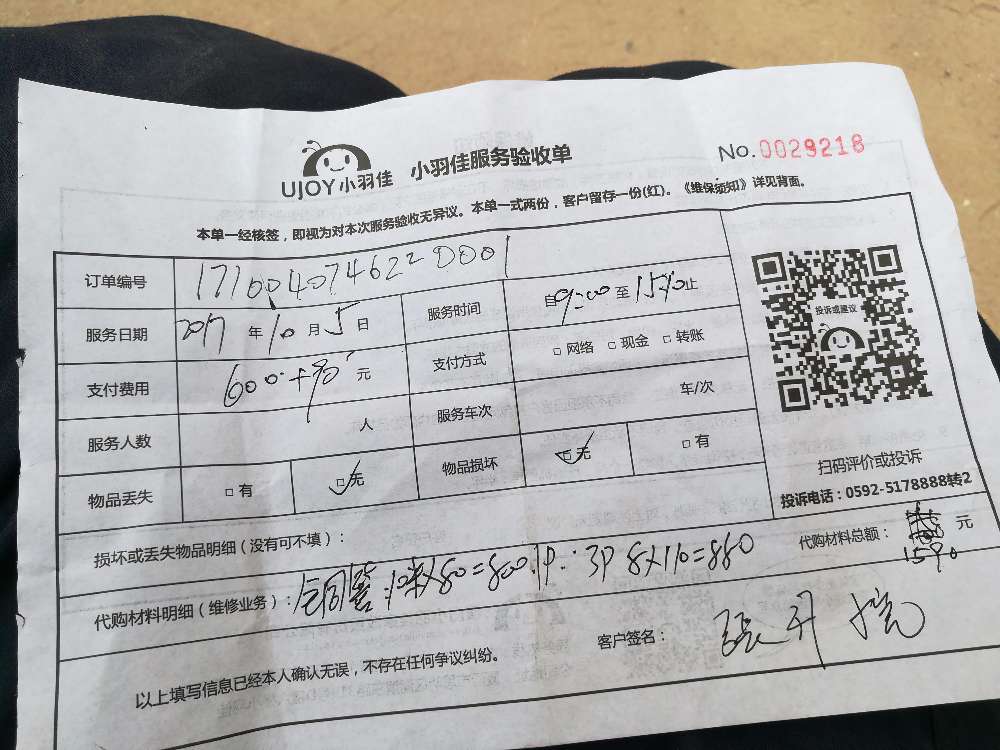 UJOY小羽佳 小羽佳服务验收单 No.0029218
本单一经核签，即视为对本次服务验收无异议。本单一式两份，客户留存一份(红)。《维保须知》详见背面。
订单编号 171004074622 0001
服务日期 2017 年 10 月 5 日 服务时间 自 9:00 至 止
支付费用 600+90 元 支付方式 □ 网络 □ 现金 □ 转账
服务人数 人 服务车次 车/次
物品丢失 □ 有 □ 无 物品损坏 □ 无 □ 有
投诉或建议
扫码评价或投诉
投诉电话：0592-5178888转2
损坏或丢失物品明细（没有可不填）：
代购材料总额： 1590 元
代购材料明细（维修业务）： 铜管：10米×80=800.1P: 3P 8×110=880
客户签名： 张
以上填写信息已经本人确认无误，不存在任何争议纠纷。